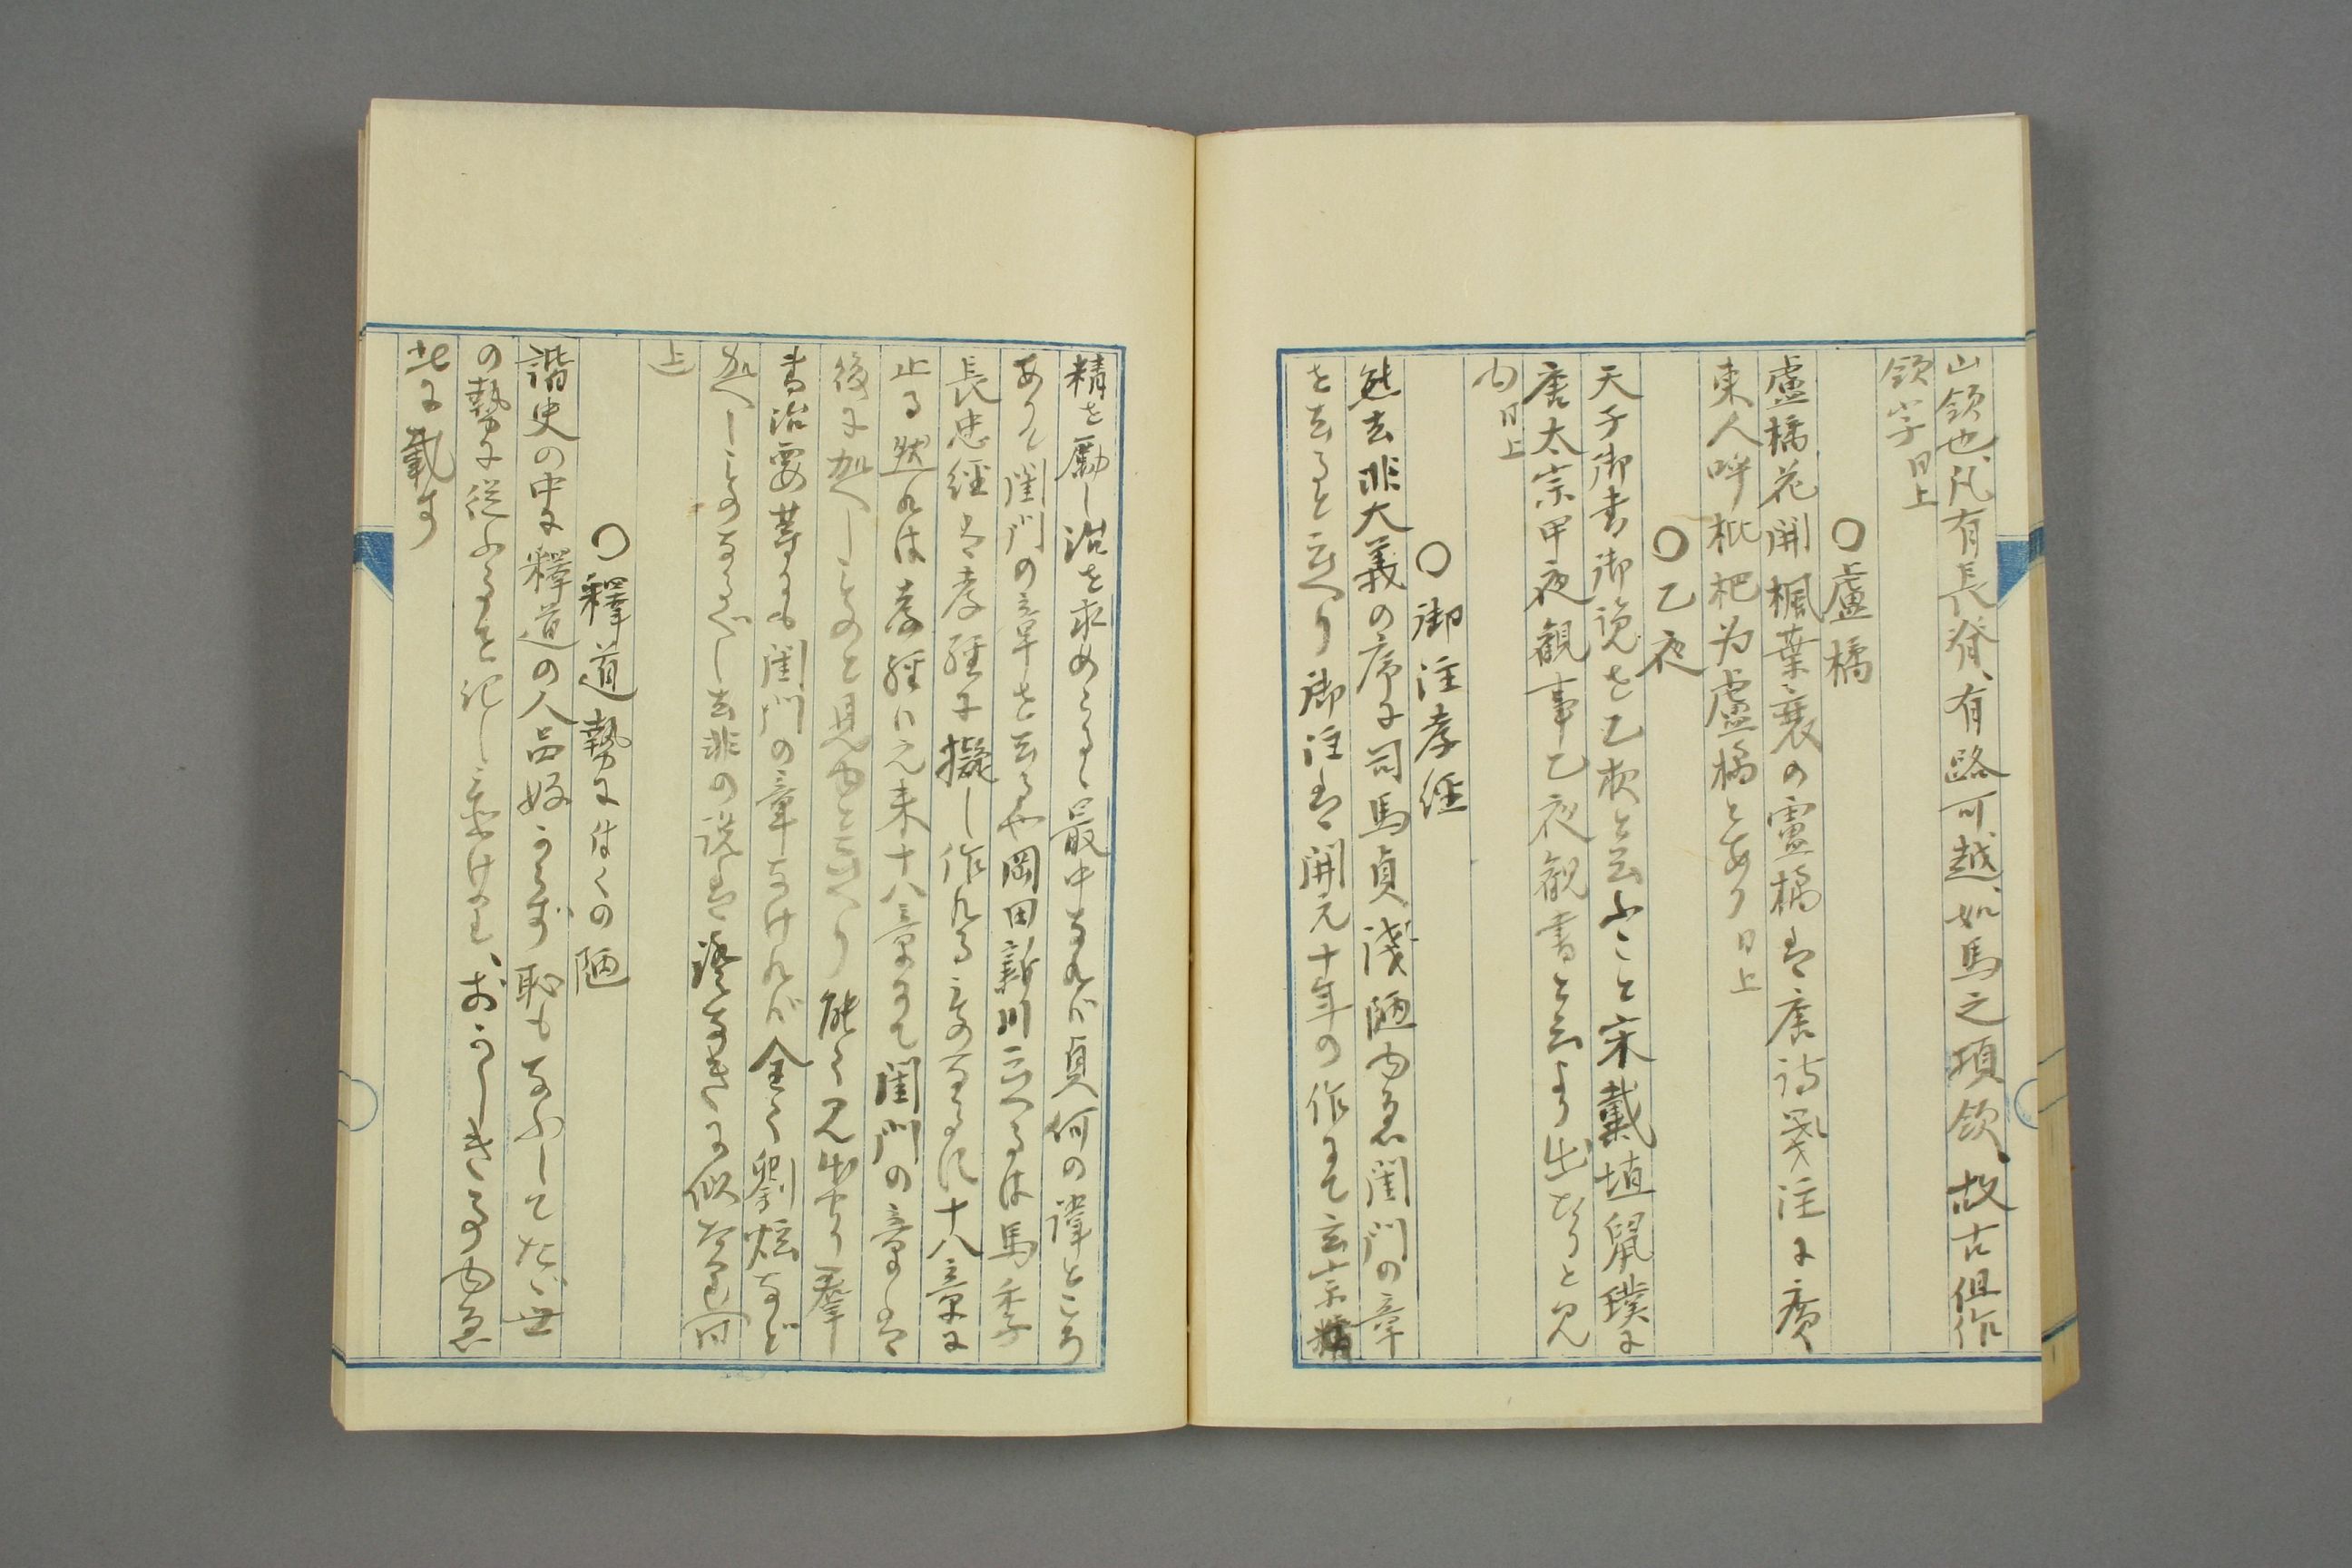 山領也、凡有長脊、有路可越、如馬之項領、故古但作
領字 同上
○盧橘
盧橘花開楓葉衰の盧橘は唐詩箋注に廣
東人呼枇杷为盧橘とあり 同上
○乙夜
天子御書御覧を乙夜と云ふこと宋戴埴鼠璞に
唐太宗甲夜観事乙夜観書と云より出たりと見
ゆ 同上
○御注孝經
熊去非大義の序に司馬貞淺陋ゆゑ閨門の章
を去ると云へり御注は開元十年の作にて玄宗精
精を勵し治を求めらるゝ最中なれバ貞何の諱ところ
ありて閨門の章を去るや岡田新川云へるは馬季
長忠經は孝經に擬し作れるものなるに十八章に
止る然れは孝經は元来十八章にて閨門の章は
後に加へしものと見ゆと云へり 能く見出せり羣
書治要等にも閨門の章なけれバ全く劉炫など
加へしものなるべし去非の説は證なきに似たり 同
上
○釋道勢に付くの陋
諧史の中に釋道の人品好からず恥もなふしてたゞ世
の勢に従ふことを記し置けり、おかしきものゆゑ
此に載す